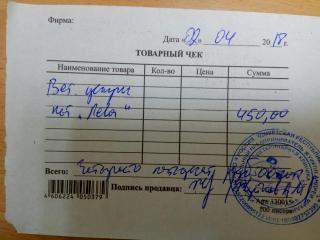 Фирма:
Дата «22» 04 2018г.
ТОВАРНЫЙ ЧЕК
Наименование товара Кол-во Цена Сумма
Вет услуги
кот „Лёва" 450,00
Всего: Четыреста пятьдесят руб 00 коп
Подпись продавца:
4606224 050379